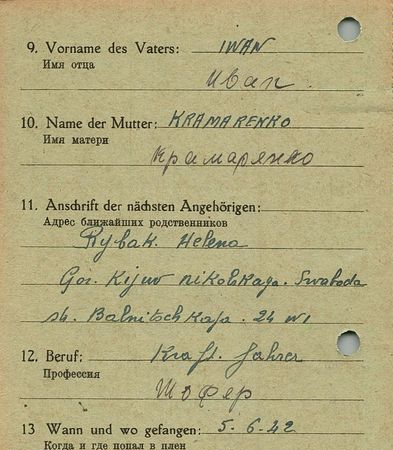 9. Vorname des Vaters: IWAN
Имя отца
Иван.
10. Name der Mutter: KRAMARENKO
Имя матери
Крамарянко
11. Anschrift der nächsten Angehörigen:
Адрес ближайших родственников
Rybak. Helena
Gor. Kijuw nikolskaga. Swaboda
st. Balnitschkaja. 24 N1
12. Beruf: Kraft. fahrer
Профессия
Шофер
13 Wann und wo gefangen: 5. 6. 42
Когда и где попал в плен